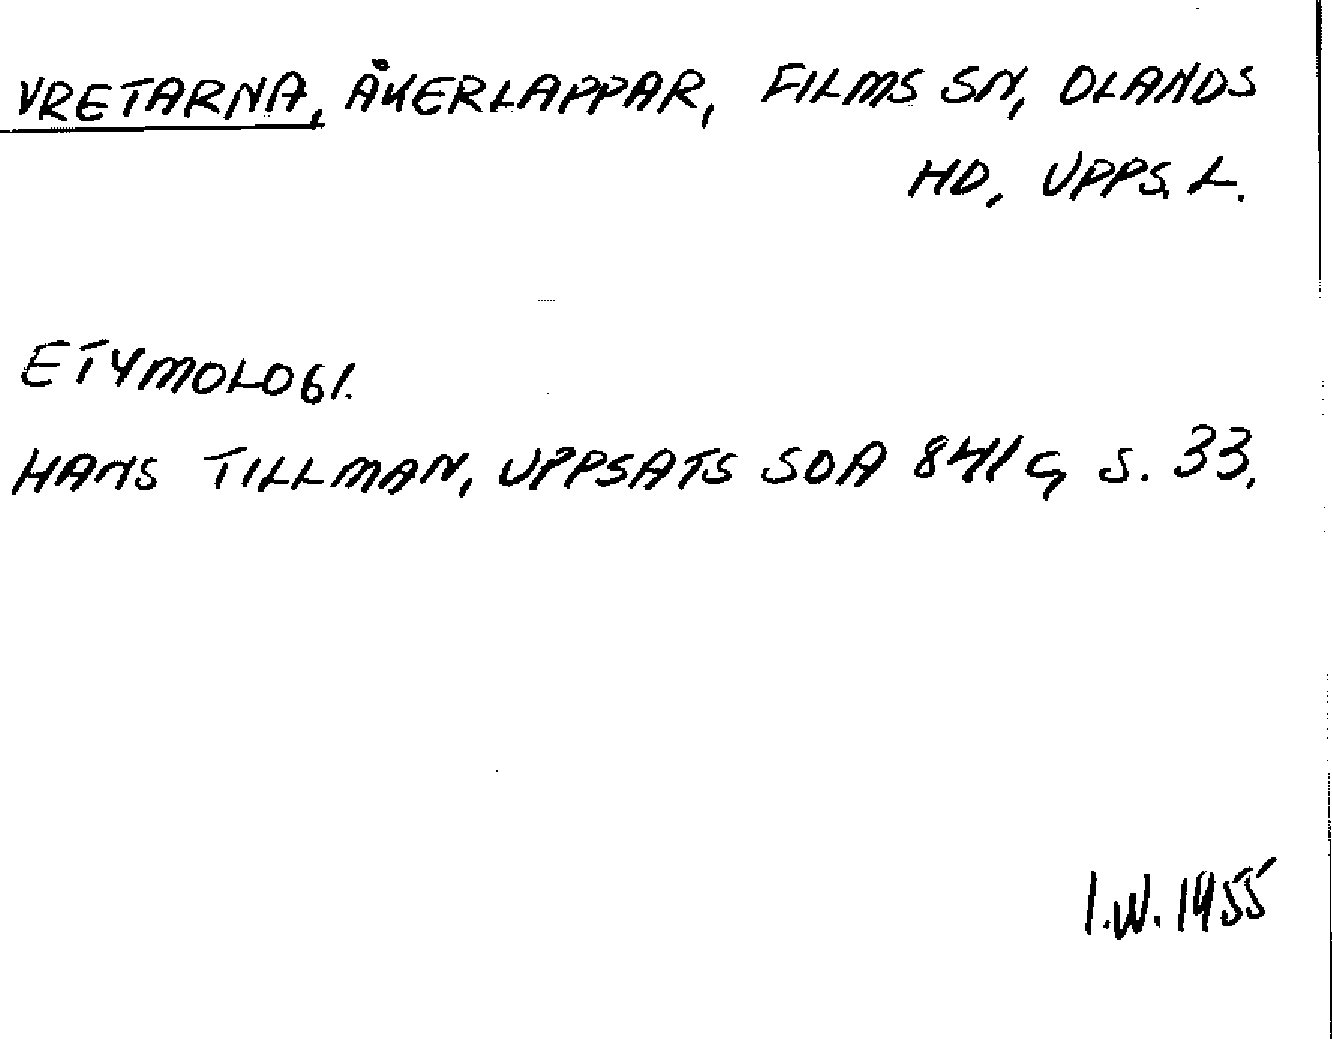 VRETARNA, ÅKERLAPPAR, FILMS SN, OLANDS
HD, UPPS. L.
ETYMOLOGI.
HANS TILLMAN, UPPSATS SOA 841 G, S. 33.
I.W. 1955